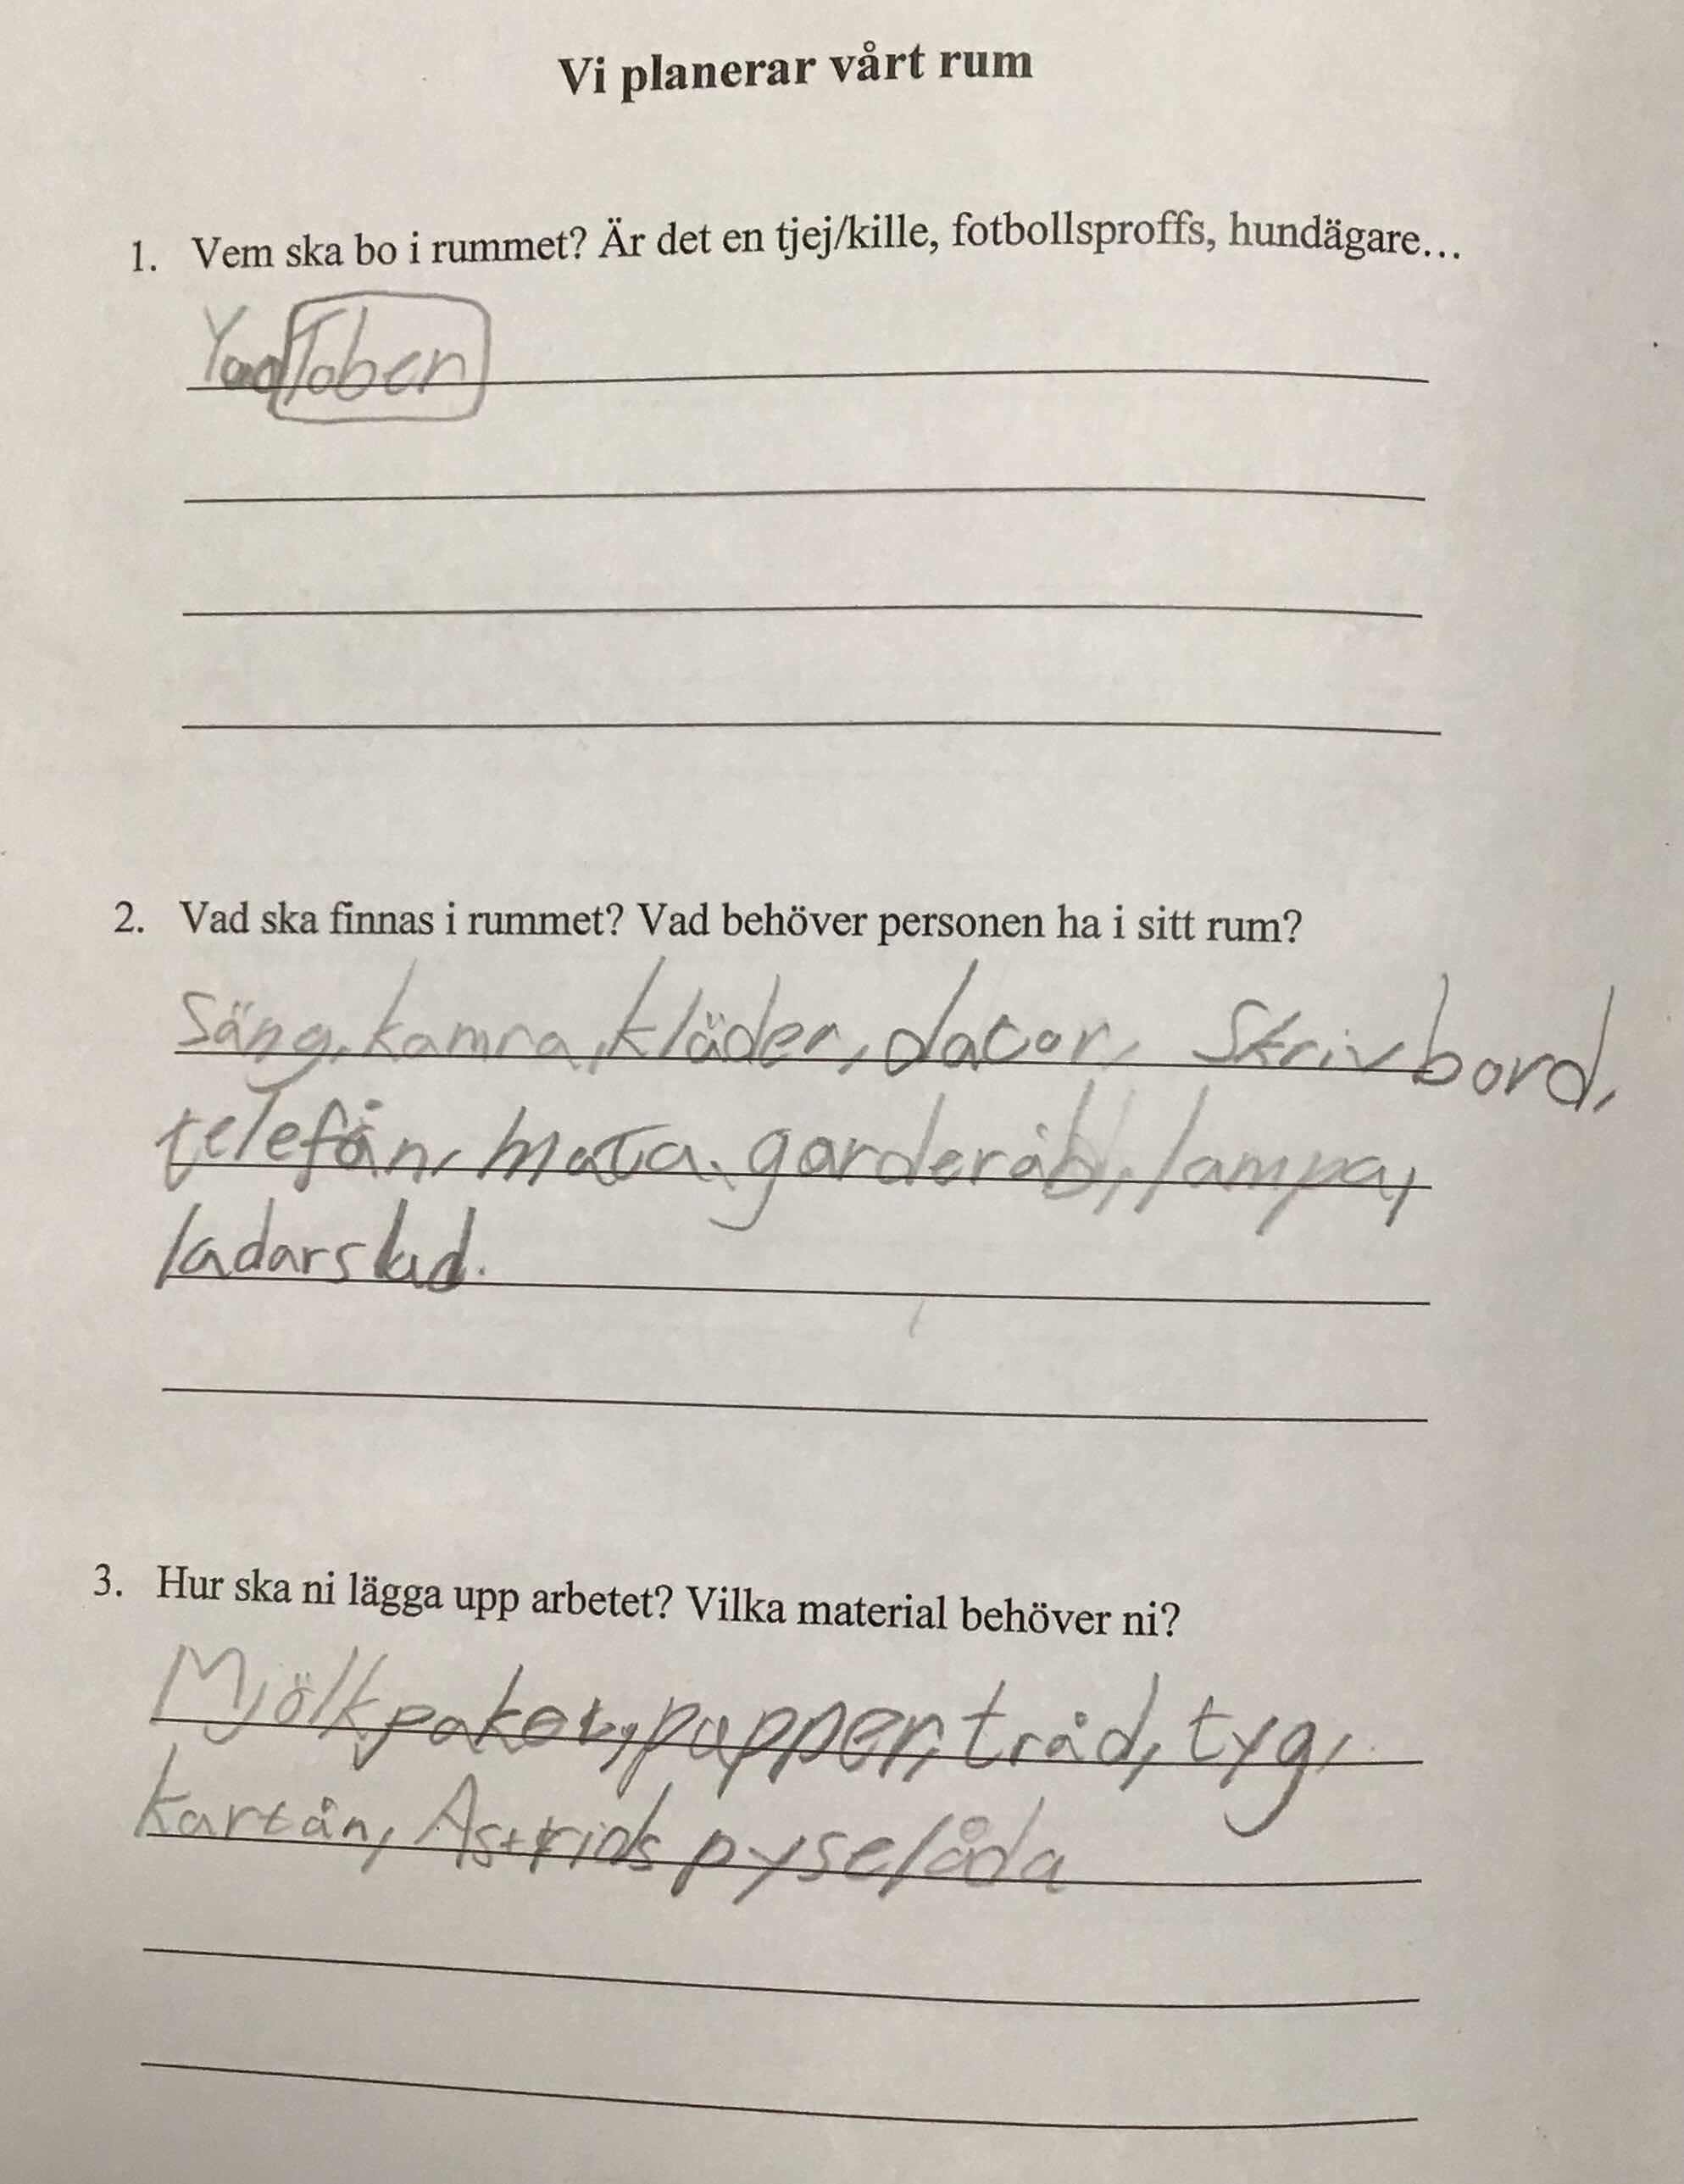 Vi planerar vårt rum
1. Vem ska bo i rummet? Är det en tjej/kille, fotbollsproffs, hundägare…
YouTober
2. Vad ska finnas i rummet? Vad behöver personen ha i sitt rum?
Säng, kamra, kläder, dator, Skrivbord,
telefån, mata, garderåb, lampa,
ladarslad.
3. Hur ska ni lägga upp arbetet? Vilka material behöver ni?
Mjölkpaket, papper, tråd, tyg,
kartån, Astrids pyselåda